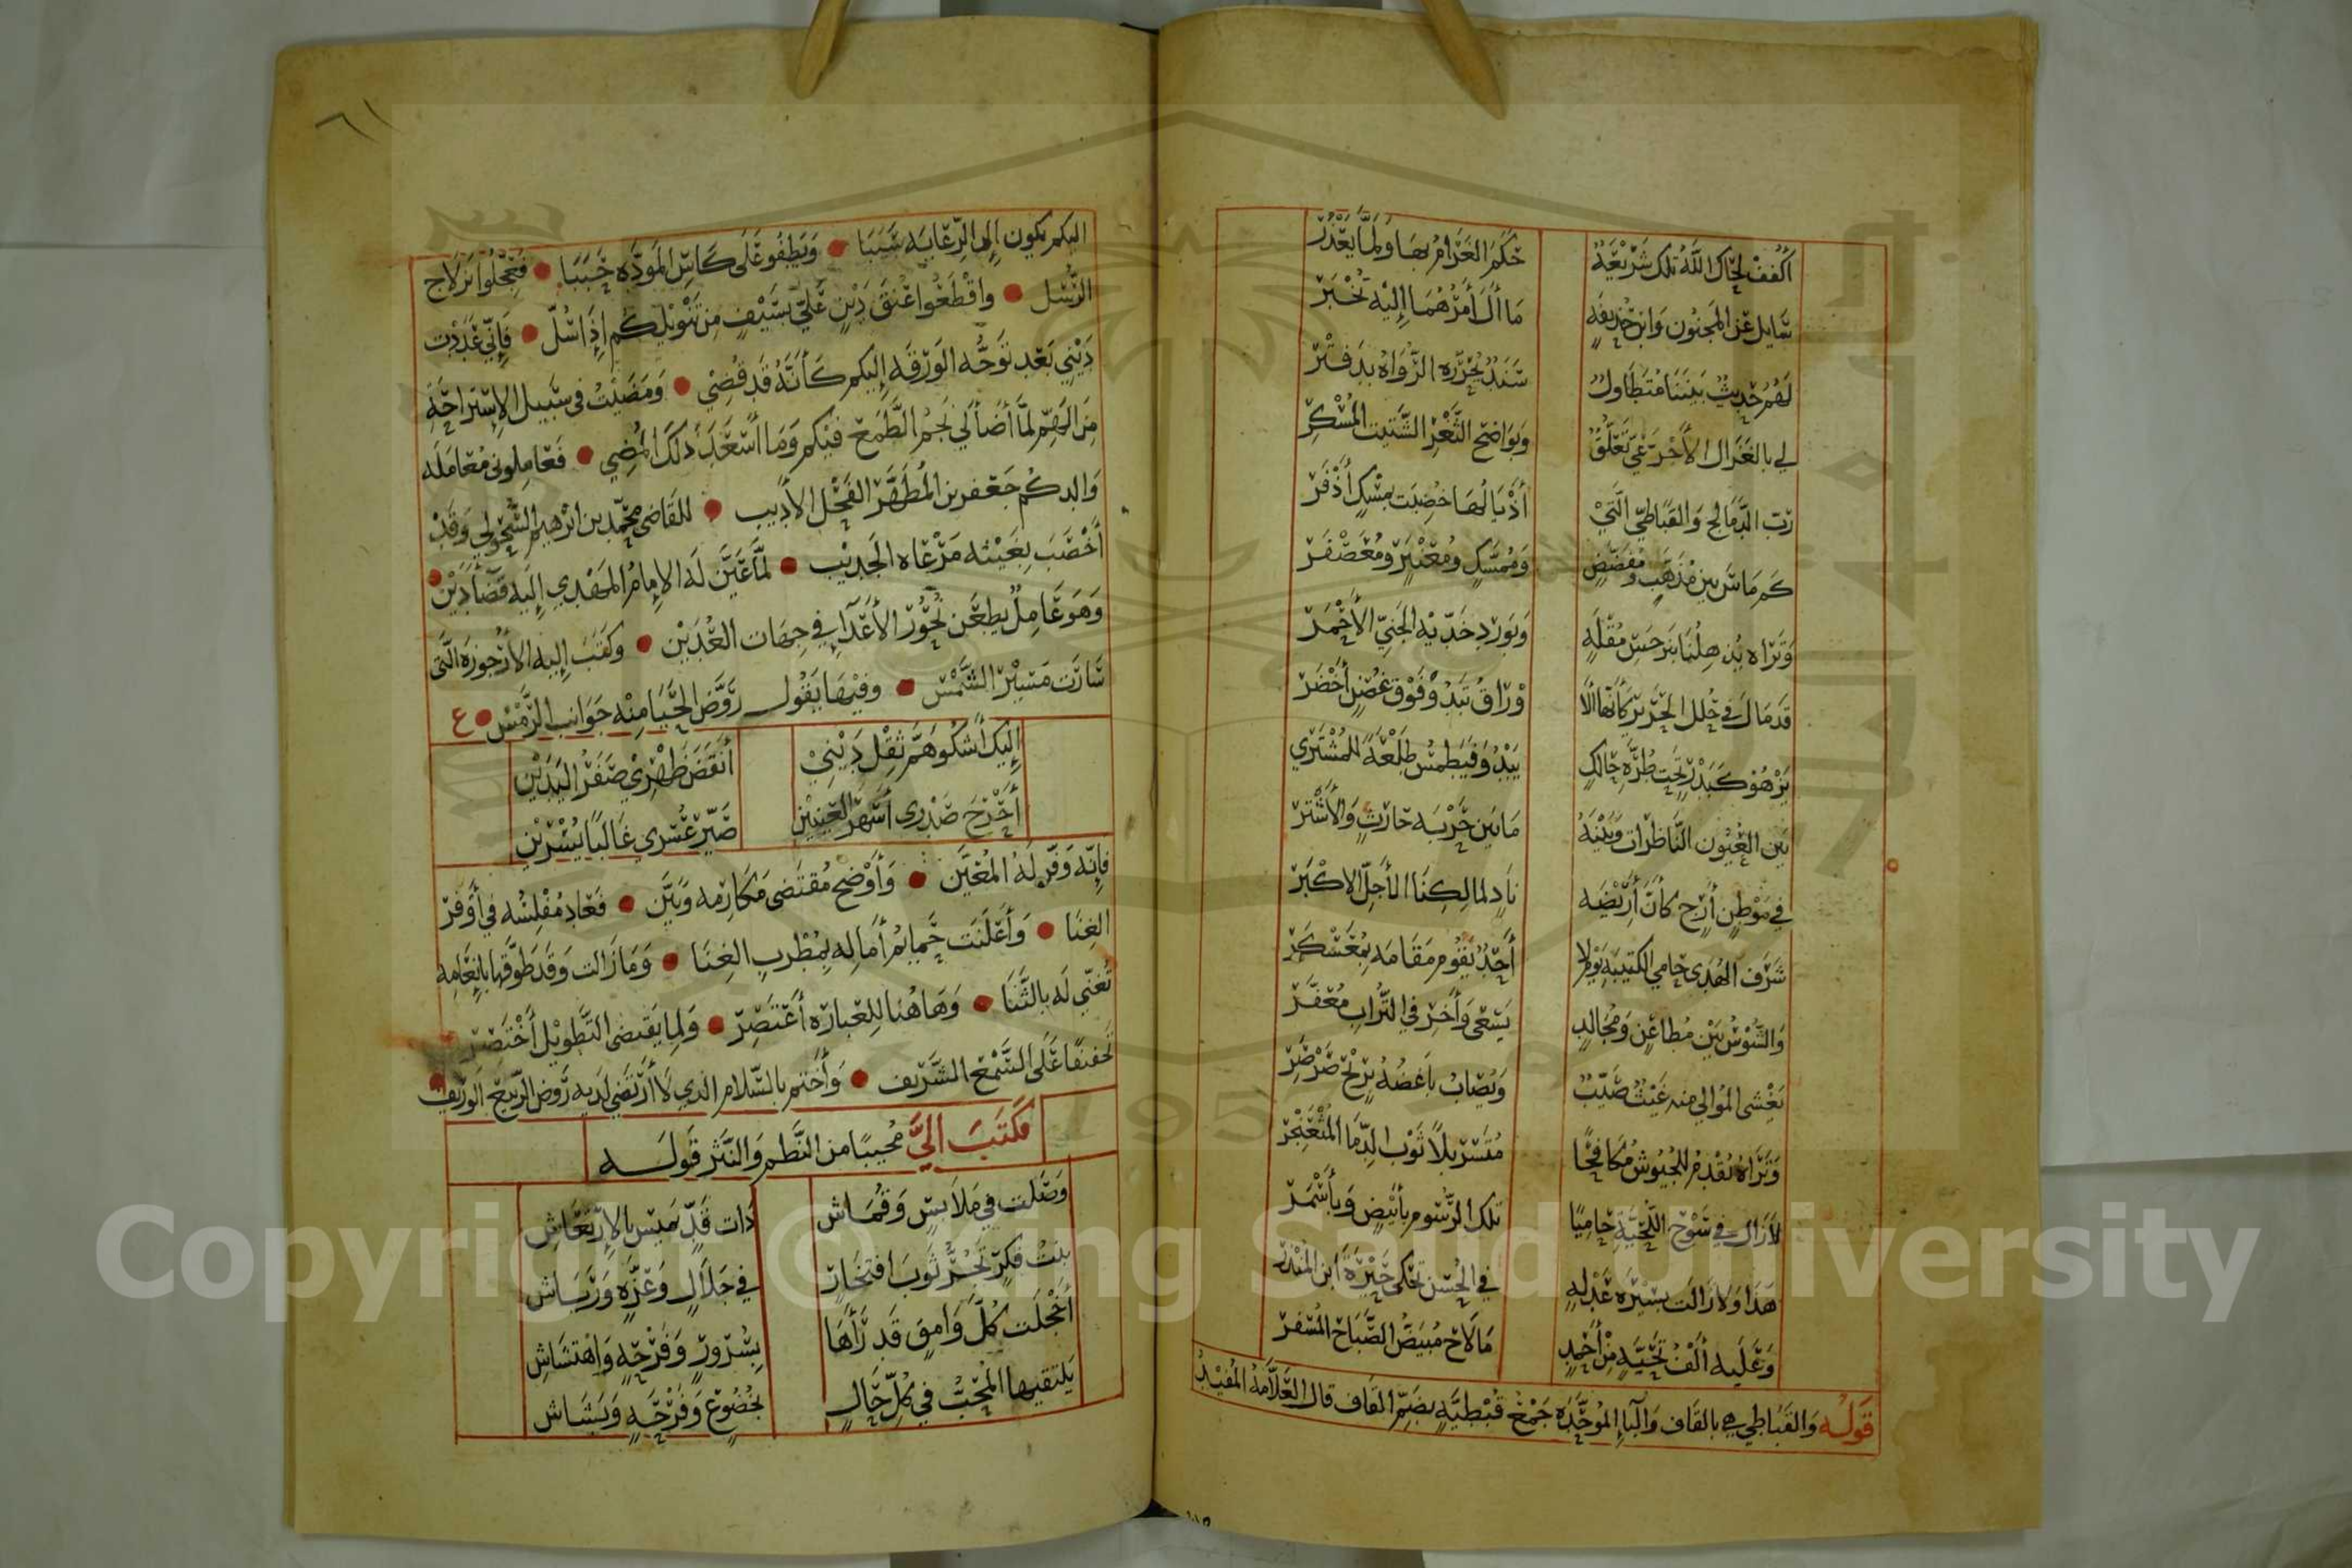 أكفف لحاك الله تلك شريعة حكم الغرام بها ولما يعذر
سايل عن المجنون وابن حذيفة ما آل أمرهما إليه تخبر
لهم حديث بيننا متطاول سند يحرره الرواة بدفتر
لي بالغزال الأحر عي تعلق وبواضح الثغر الشتيت المسكر
رب الدمالج والقباطي التي أذيالها خضبت بمسك أذفر
كم ماس بين مذهب ومفضض وممسك ومعنبر ومعصفر
وتراه يذهلنا بنرجس مقلة وبورد خديه الجني الأحمر
قد مال في حلل الحرير كأنها الأ وراق تبدو فوق غصن أخضر
يزهو كبدر تحت طرة حالك يبدو فيطمس طلعة للمشتري
بين العيون الناظرات وبينه ما بين حربه حارث والأشتر
في موطن أرج كأن أريضه ناد لمالكنا الأجل الأكبر
شرف الهدى حامي الكتيبة يوم لا أحد يقوم مقامه بمعسكر
والشوس بين مطاعن ومجالد يسعى وأخر في التراب معفر
يغشى الموالي منه غيث صيب ويصاب باغضه بريح صرصر
وتراه يقدم للجيوش مكافحا متسربلا ثوب الدما المثعنجر
لا زال في سوح اللحية حاميا تلك الرسوم بأبيض وبأسمر
هذا ولا زالت بسيرة عدله في الحسن تحكي حيرة ابن المنذر
وعليه ألف تحية من أحمد ما لاح مبيض الصباح المسفر
قوله والقباطي هي بالقاف والبا الموحدة جمع قبطية بضم القاف قال العلامة المفيد
٦١
اليكم يكون إلى الرعاية سببا • ويطفو على كاس المودة حببا • فعجلوا بزلاج
الرسل • واقطعوا عنق دين علي بسيف من تنويلكم إذا سل • فإني عددت
ديني بعد توجه الورقة إليكم كأنه قد قضي • ومضيت في سبيل الإستراحة
من الهم لما أضا لي نجم الطمع فيكم وما أسعد ذلك المضي • فعاملوني معاملة
والدكم جعفر بن المطهر الفحل الأديب • للقاضي محمد بن ابرهيم السحولي وقد
أخصب بغيثه مرعاه الجديب • لما عين له الإمام المهدي إليه قضا دين •
وهو عامل يطعن نحور الأعدآ في جهات العدين • وكتب إليه الأرجوزة التي
سارت مسير الشمس • وفيها يقول روض الحيا منه جوانب الرمس • ع
إليك أشكو هم ثقل ديني أنقض ظهري صفر اليدين
أحرج صدري أسهر العينين صير عسري غالبا يسرين
فإنه وفر له المعين • وأوضح مقتضى مكارمه وبين • فعاد مفلسه في أوفر
الغنا • وأعلنت حمايم أماله بمطرب الغنا • وما زالت وقد طوقها بإنعامه
تغني له بالثنا • وها هنا للعبارة أعتصر • ولما يقتضي التطويل أختصر
تخفيفا على السمع الشريف • وأختم بالسلام الذي لا أرتضي لديه روض الربيع الوريف •
فكتب إلي مجيبا من النظم والنثر قوله
وصلت في ملابس وقماش ذات قد يميس بالإرتعاش
بنت فكر تجر ثوب افتخار في جلال وعزة ورياش
أخجلت كل وامق قد رأها بسرور وفرحة واهتشاش
يلتقيها المحب في كل حال بخضوع وفرحة وبشاش
Copyright © King Saud University